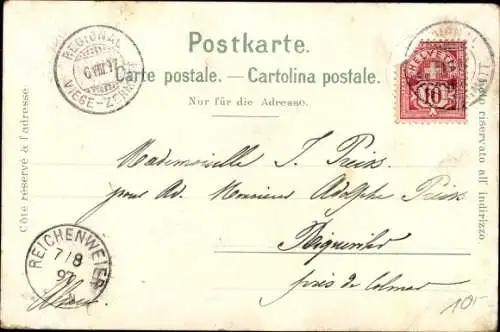 Postkarte.
Carte postale. — Cartolina postale.
Nur für die Adresse.
Côté réservé à l'adresse.
Lato riservato all' indirizzo
REGIONAL
6 VIII 97
VIEGE - ZERMATT
HELVETIA
10
Mademoiselle J. Preiss
pour ad. Monsieur Adolphe Preiss
Riquewihr
près de Colmar
REICHENWEIER
7/8
97
10-